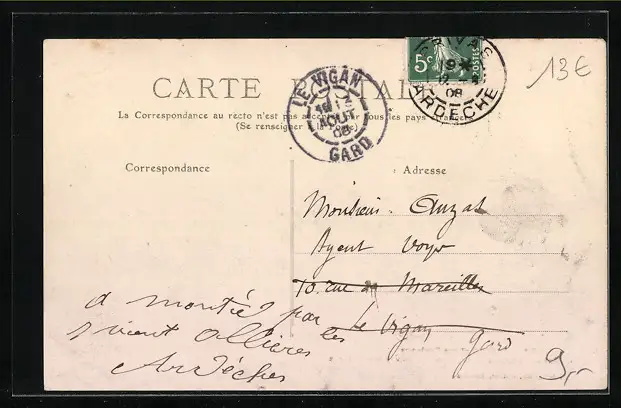 CARTE POSTALE
La Correspondance au recto n'est pas acceptée par tous les pays étrangers
(Se renseigner à la Poste)
Correspondance
Adresse
5c
POSTES
PRIVAS
19
08
ARDÈCHE
LE VIGAN
AOUT
08
GARD
13€
Monsieur Auzal
Agent Voyer
10. rue Marseilles
Le Vigan
Gard
a
par
vient Ollières les
Ardèches
9,-